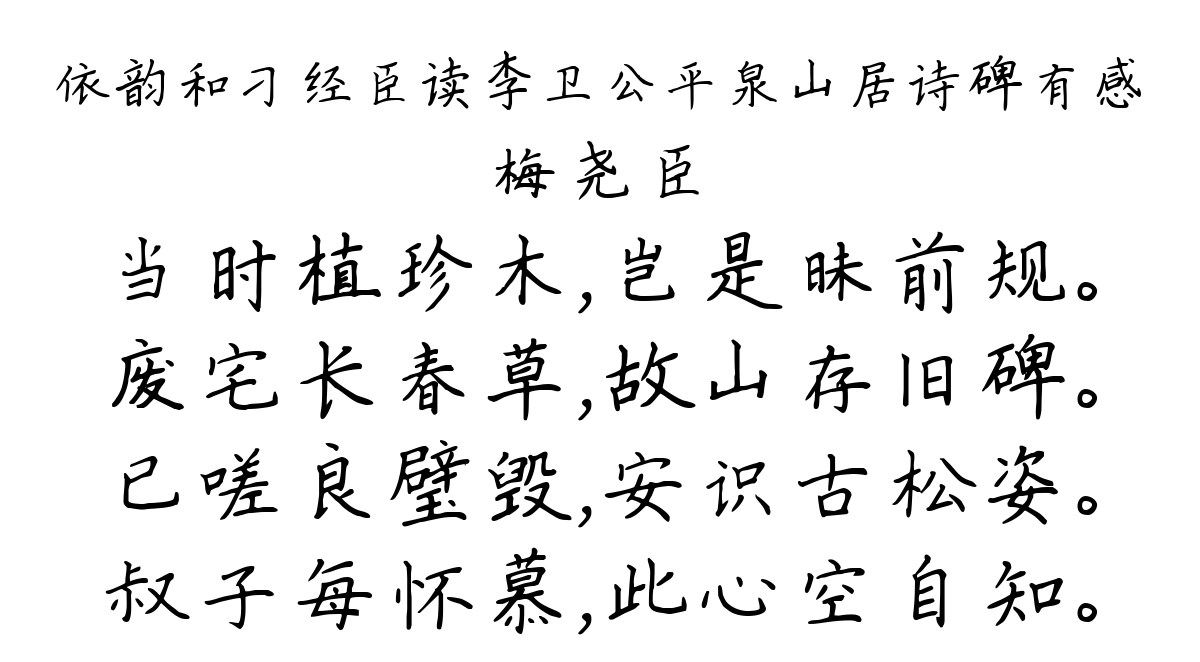 依韵和刁经臣读李卫公平泉山居诗碑有感
梅尧臣
当时植珍木,岂是昧前规。
废宅长春草,故山存旧碑。
已嗟良璧毁,安识古松姿。
叔子每怀慕,此心空自知。